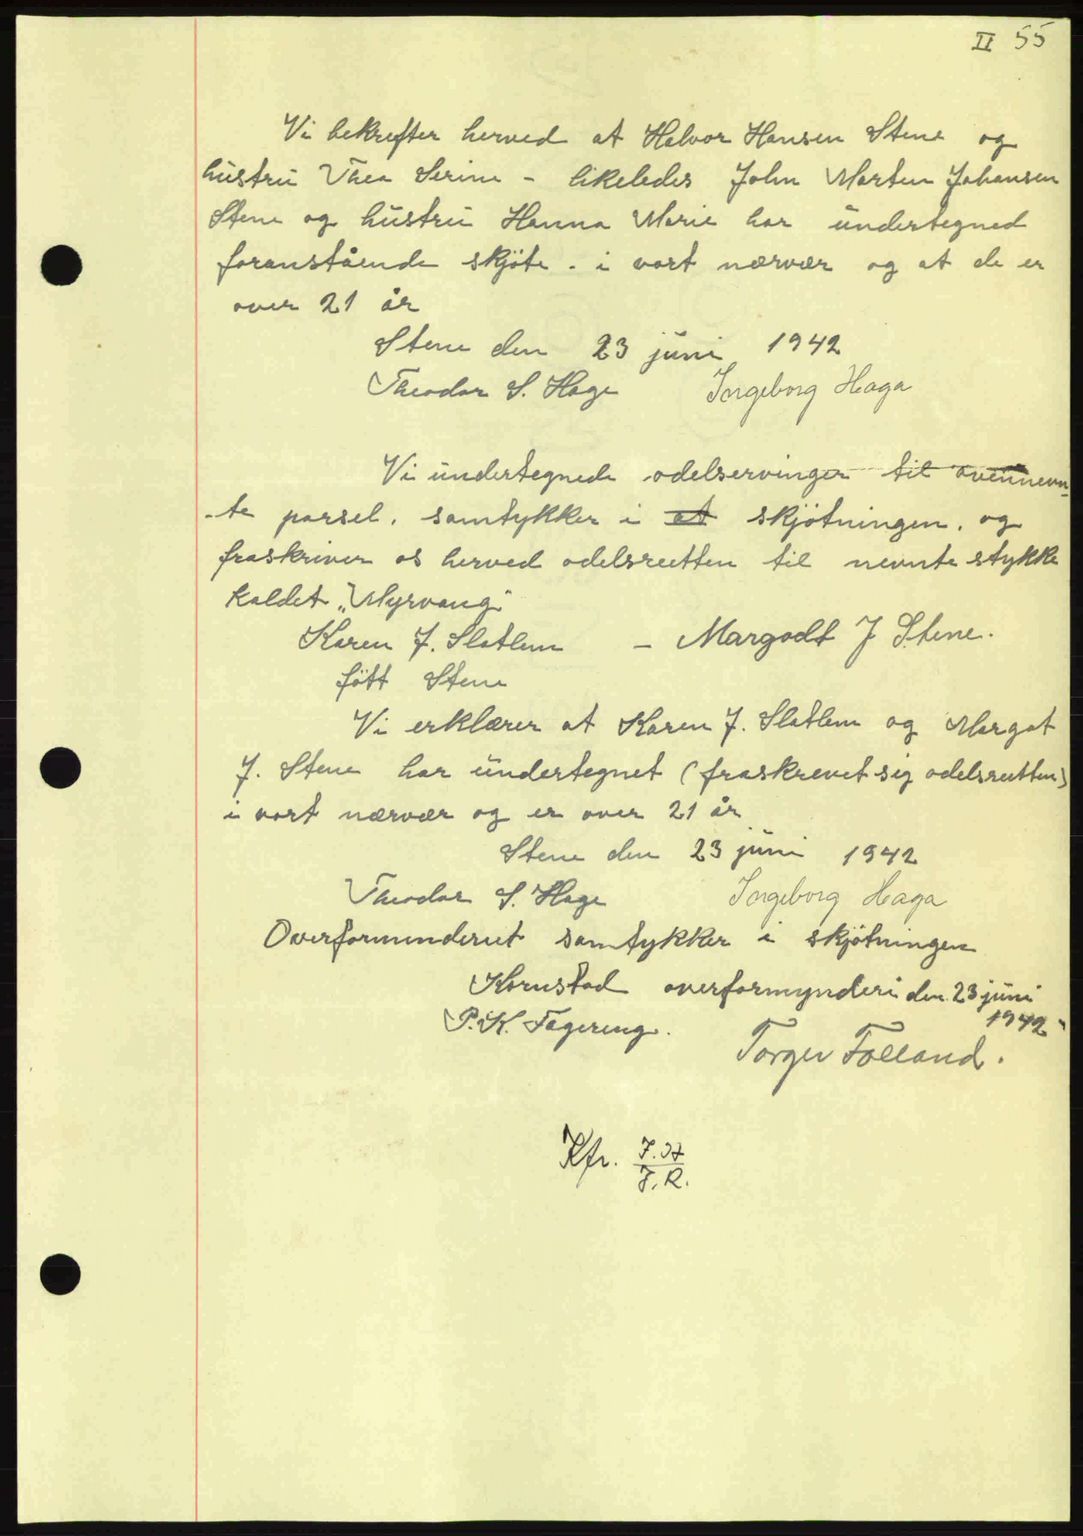 II 55
Vi bekrefter herved at Halvor Hansen Stene og
hustru Thea Serine - likeledes John Marten Johansen
Stene og hustru Hanna Marie har undertegned
foranstående skjöte. i vort nærvær og at de er
over 21 år
Stene den 23 juni 1942
Theodor S. Hage Ingeborg Haga
Vi undertegnede odelservinger til ovennevn-
-te parsel, samtykker i at skjötningen, og
fraskriver os herved odelsretten til nevnte stykke
kaldet "Myrvang"
Karen J. Slatlem - Margodt J Stene.
fött Stene
Vi erklærer at Karen J. Slatlem og Margot
J. Stene har undertegnet (fraskrevet sig odelsretten)
i vort nærvær og er over 21 år
Stene den 23 juni 1942
Theodor S. Hage Ingeborg Haga
Overformunderiet samtykker i skjötningen
Kornstad overformynderi den 23 juni
1942
P. K. Fagereng. Torger Folland.
Kfr. J. H
J. R.